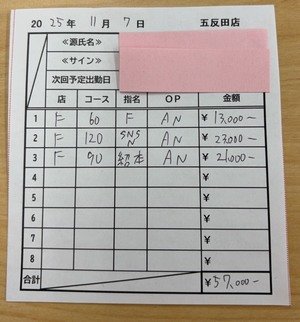 2025年 11月 7日 五反田店
≪源氏名≫
≪サイン≫
次回予定出勤日
店 コース 指名 OP 金額
1 F 60 F AN ¥13,000-
2 F 120 SNS N AN ¥23,000-
3 F 90 紹本 AN ¥21,000-
4 ¥
5 ¥
6 ¥
7 ¥
8 ¥
合計 ¥57,000-